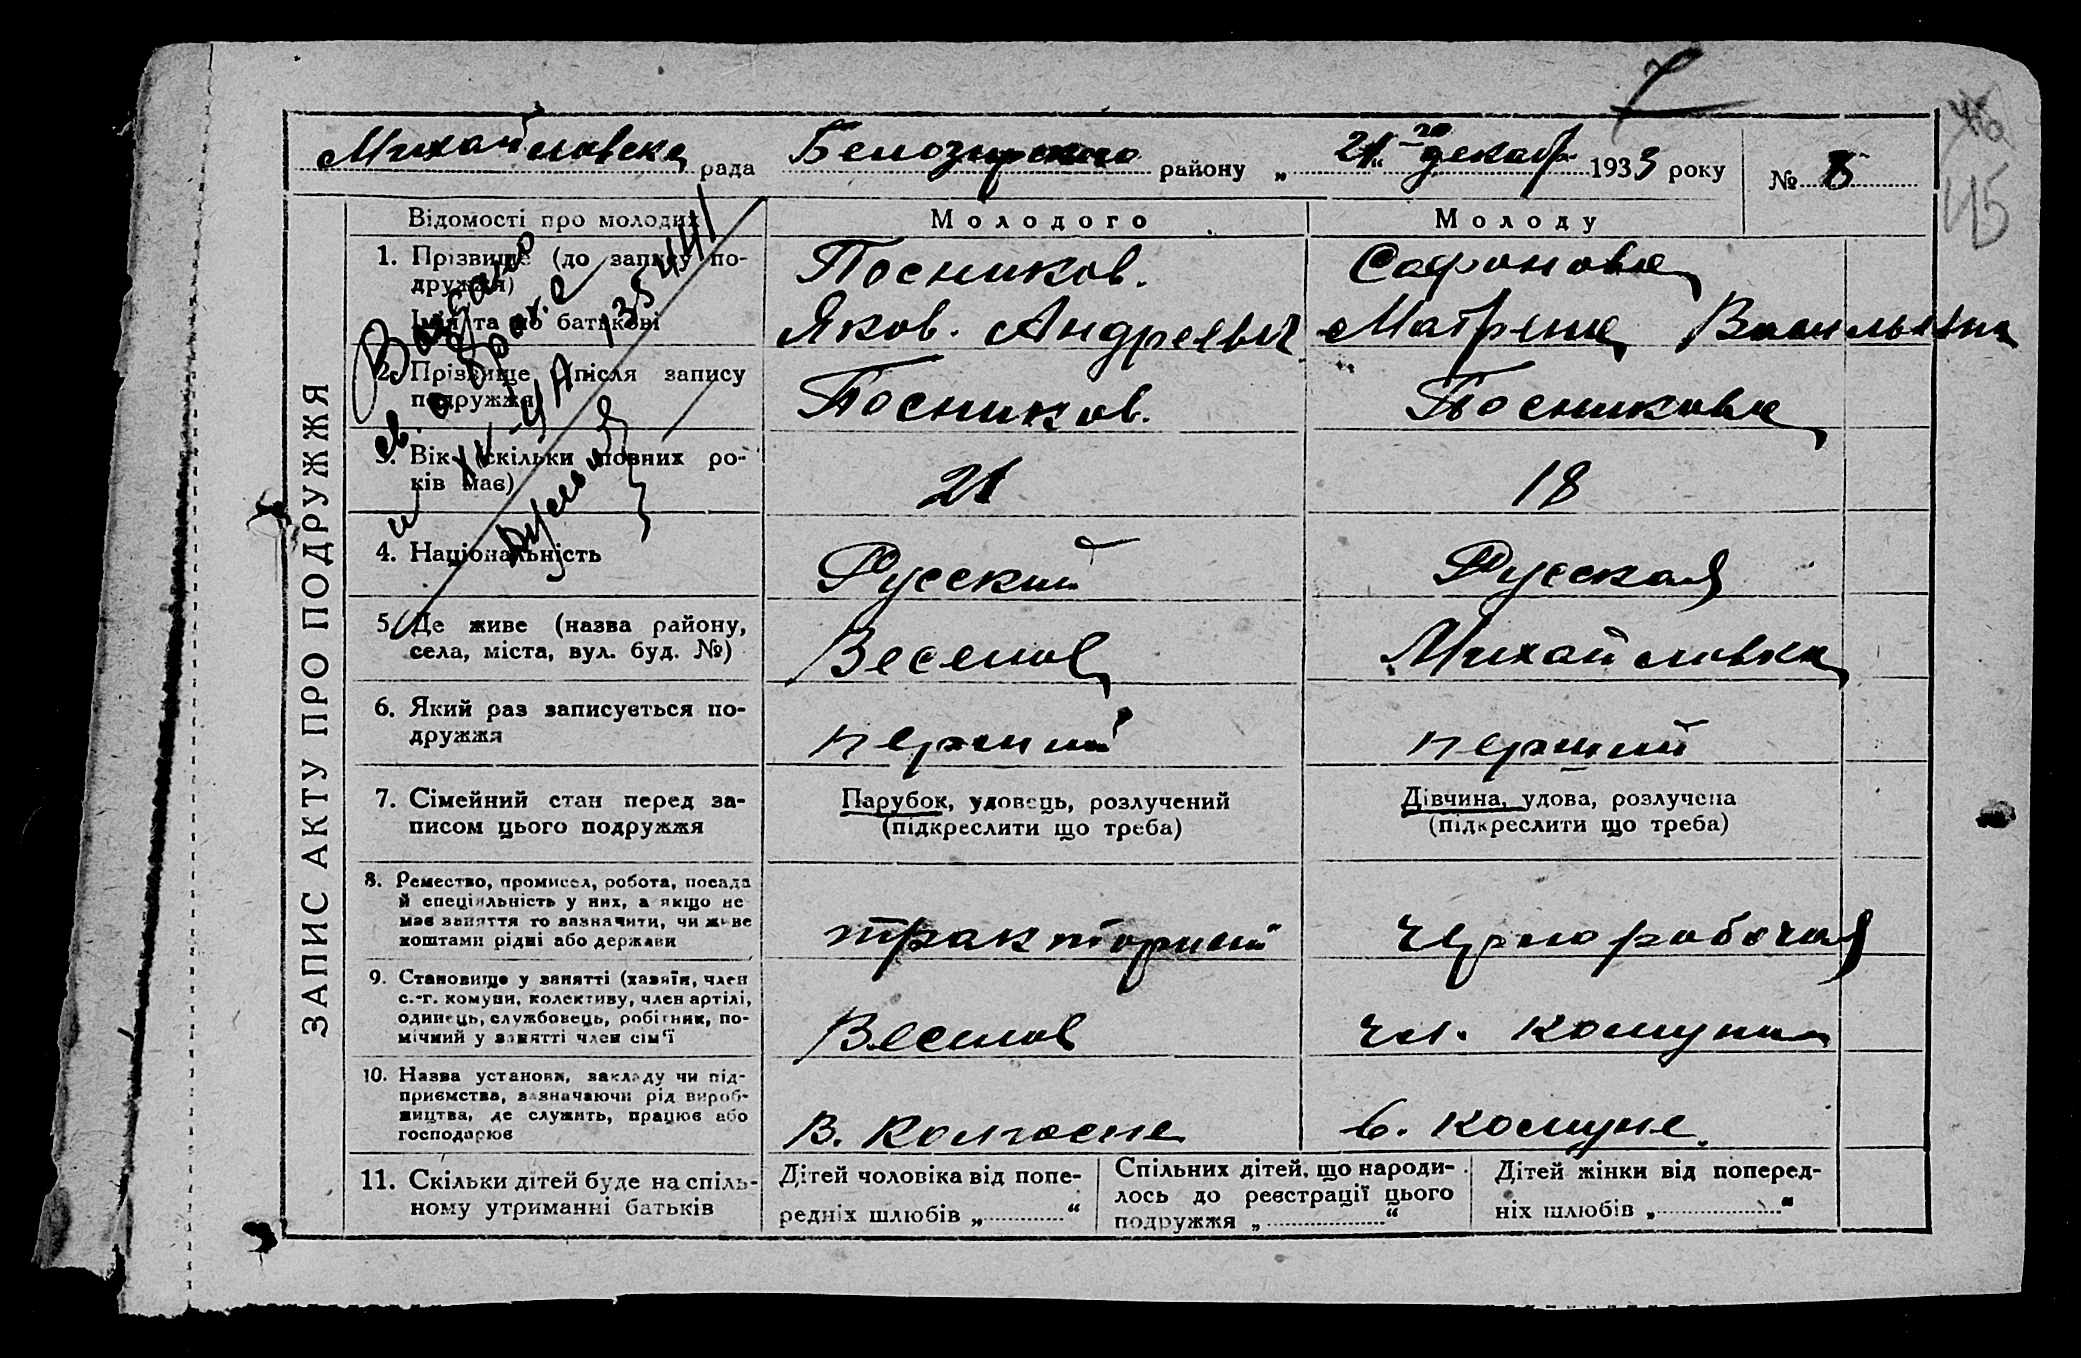 7
46
45
Михайловска рада Белозирского району „21го" декабр 1933 року № 8
ЗАПИС АКТУ ПРО ПОДРУЖЖЯ
Відомості про молодих
Молодого
Молоду
1. Прізвище (до запису по-
дружжя)
Посников.
Сафонова
Ім'я та по батькові
Яков. Андреевич
Матрена Васильевна
2. Прізвище після запису
подружжя
Посников.
Посникова
3. Вік (скільки повних ро-
ків має)
21
18
4. Національність
Русский
Русская
5. Де живе (назва району,
села, міста, вул. буд. №)
Веселов
Михайловка
6. Який раз записується по-
дружжя
перший
перший
7. Сімейний стан перед за-
писом цього подружжя
Парубок, удовець, розлучений
(підкреслити що треба)
Дівчина, удова, розлучена
(підкреслити що треба)
8. Ремество, промисел, робота, посада
й спеціяльність у них, а якщо не
має заняття то зазначити, чи живе
коштами рідні або держави
Чернорабочая
9. Становище у занятті (хазяїн, член
с.-г. комуни, колективу, член артілі,
одинець, службовець, робітник, по-
мічний у занятті член сім'ї
Веселов
чл. комуны
10. Назва установи, закладу чи під-
приємства, зазначаючи рід вироб-
ництва, де служить, працює або
господарює
В. Колгоспе
в. комуне.
11. Скільки дітей буде на спіль-
ному утриманні батьків
Дітей чоловіка від попе-
редніх шлюбів „ "
Спільних дітей, що народи-
лось до реєстрації цього
подружжя „ "
Дітей жінки від поперед-
ніх шлюбів „ "
Выдано
св. о браке